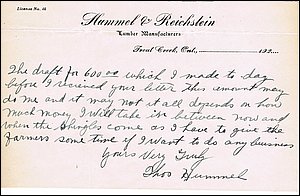 License No. 46
Hummel & Reichstein
Lumber Manufacturers
Trout Creek, Ont., 192
The draft for 600 00 which I made to day
before I received your letter this amount may
do me and it may not it all depends on how
much money I will take in between now and
when the shingles come as I have to give the
Farmers some time if I want to do any business
Yours Very Truly
Thos Hummel